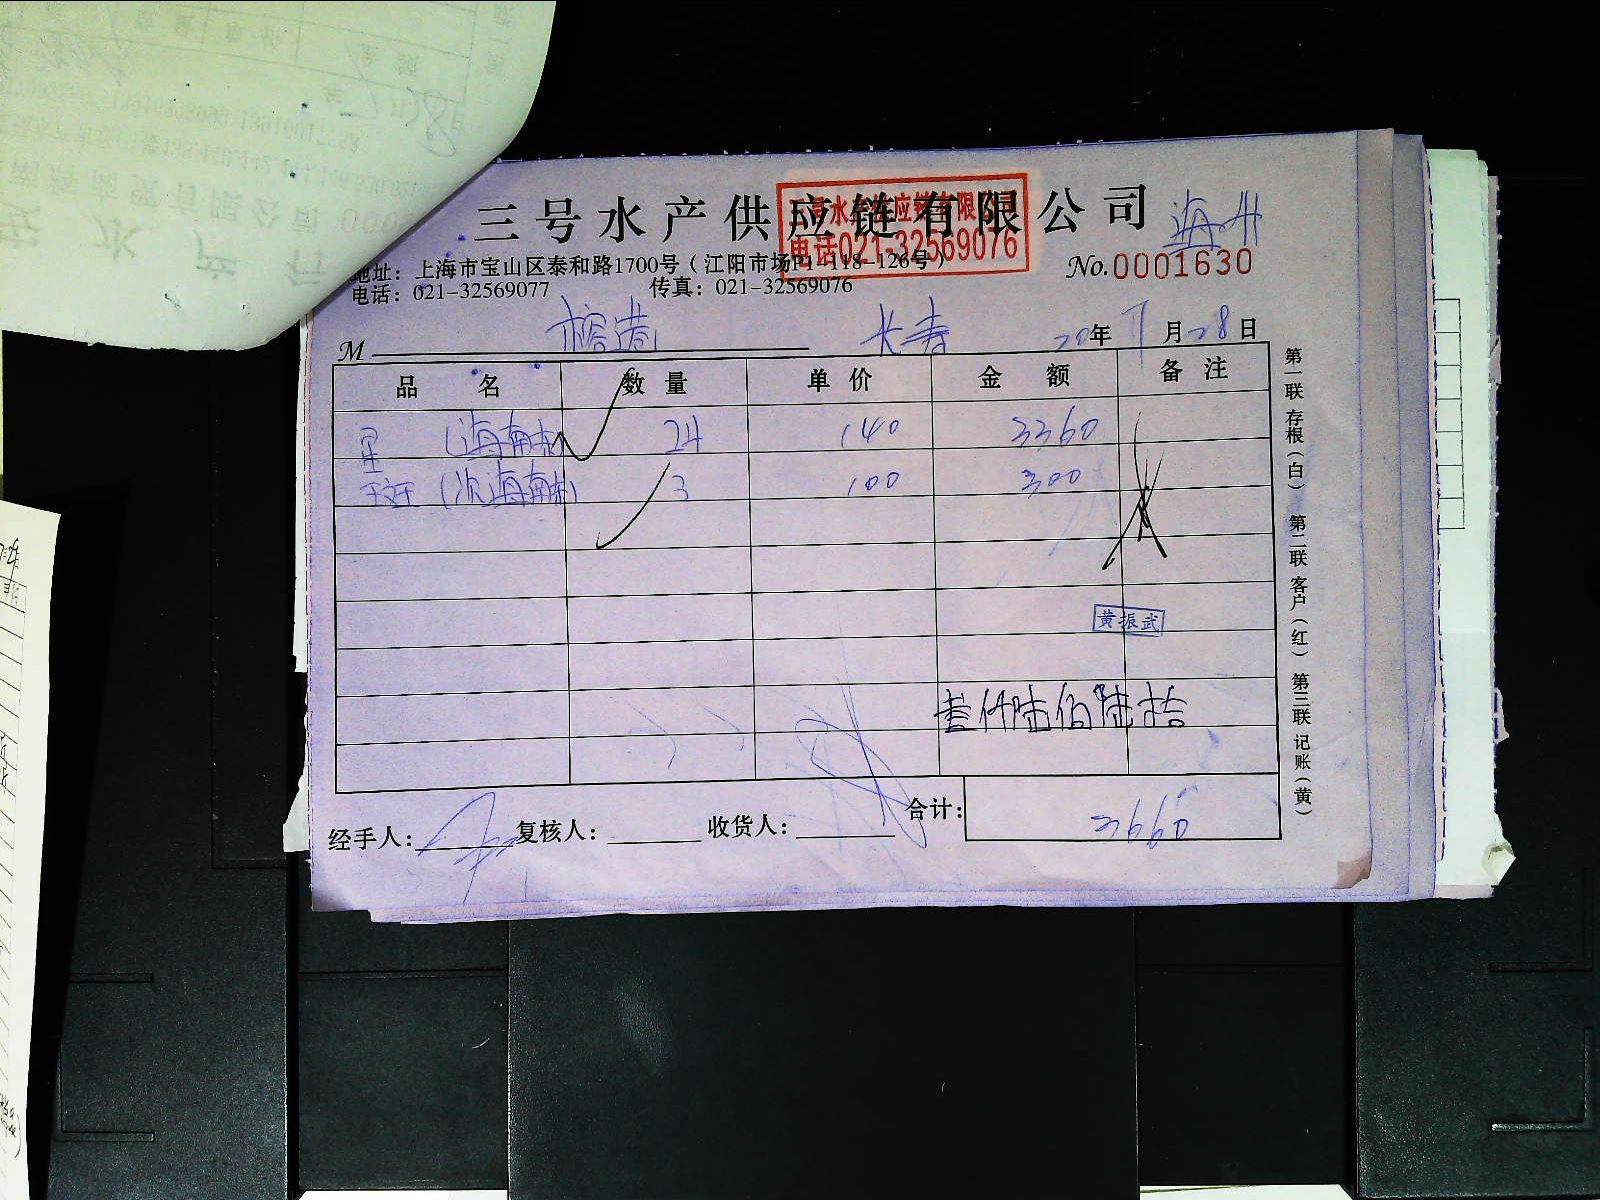 三号水产供应链有限公司
电话021-32569076
地址：上海市宝山区泰和路1700号（江阳市场P1-118-126号）
No.0001630
电话：021-32569077 传真：021-32569076
M 榕港 长寿 20年 7月28日
品名 数量 单价 金额 备注
星（海南东） 24 140 3360
（次海南东） 3 100 300
黄振武
叁仟陆佰陆拾
合计： 3660
经手人： 复核人： 收货人：
第一联 存根（白） 第二联 客户（红） 第三联 记账（黄）